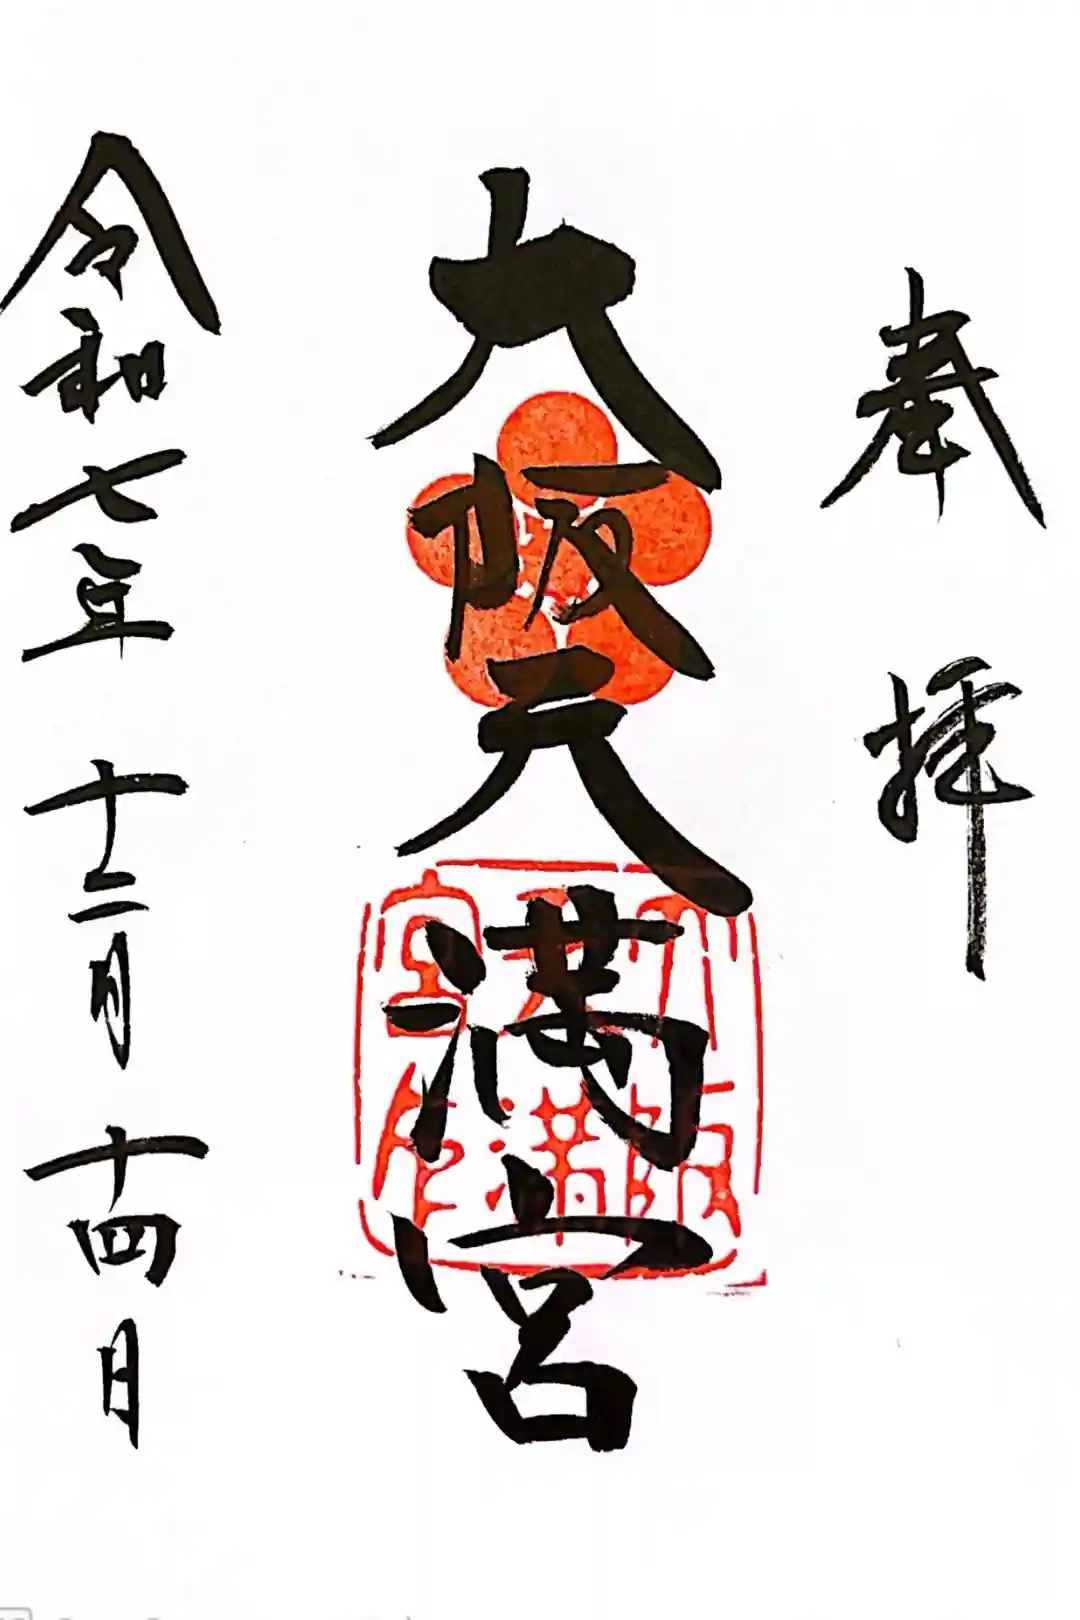 奉拝
大阪天満宮
大阪天満宮印
令和七年 十二月 十四日